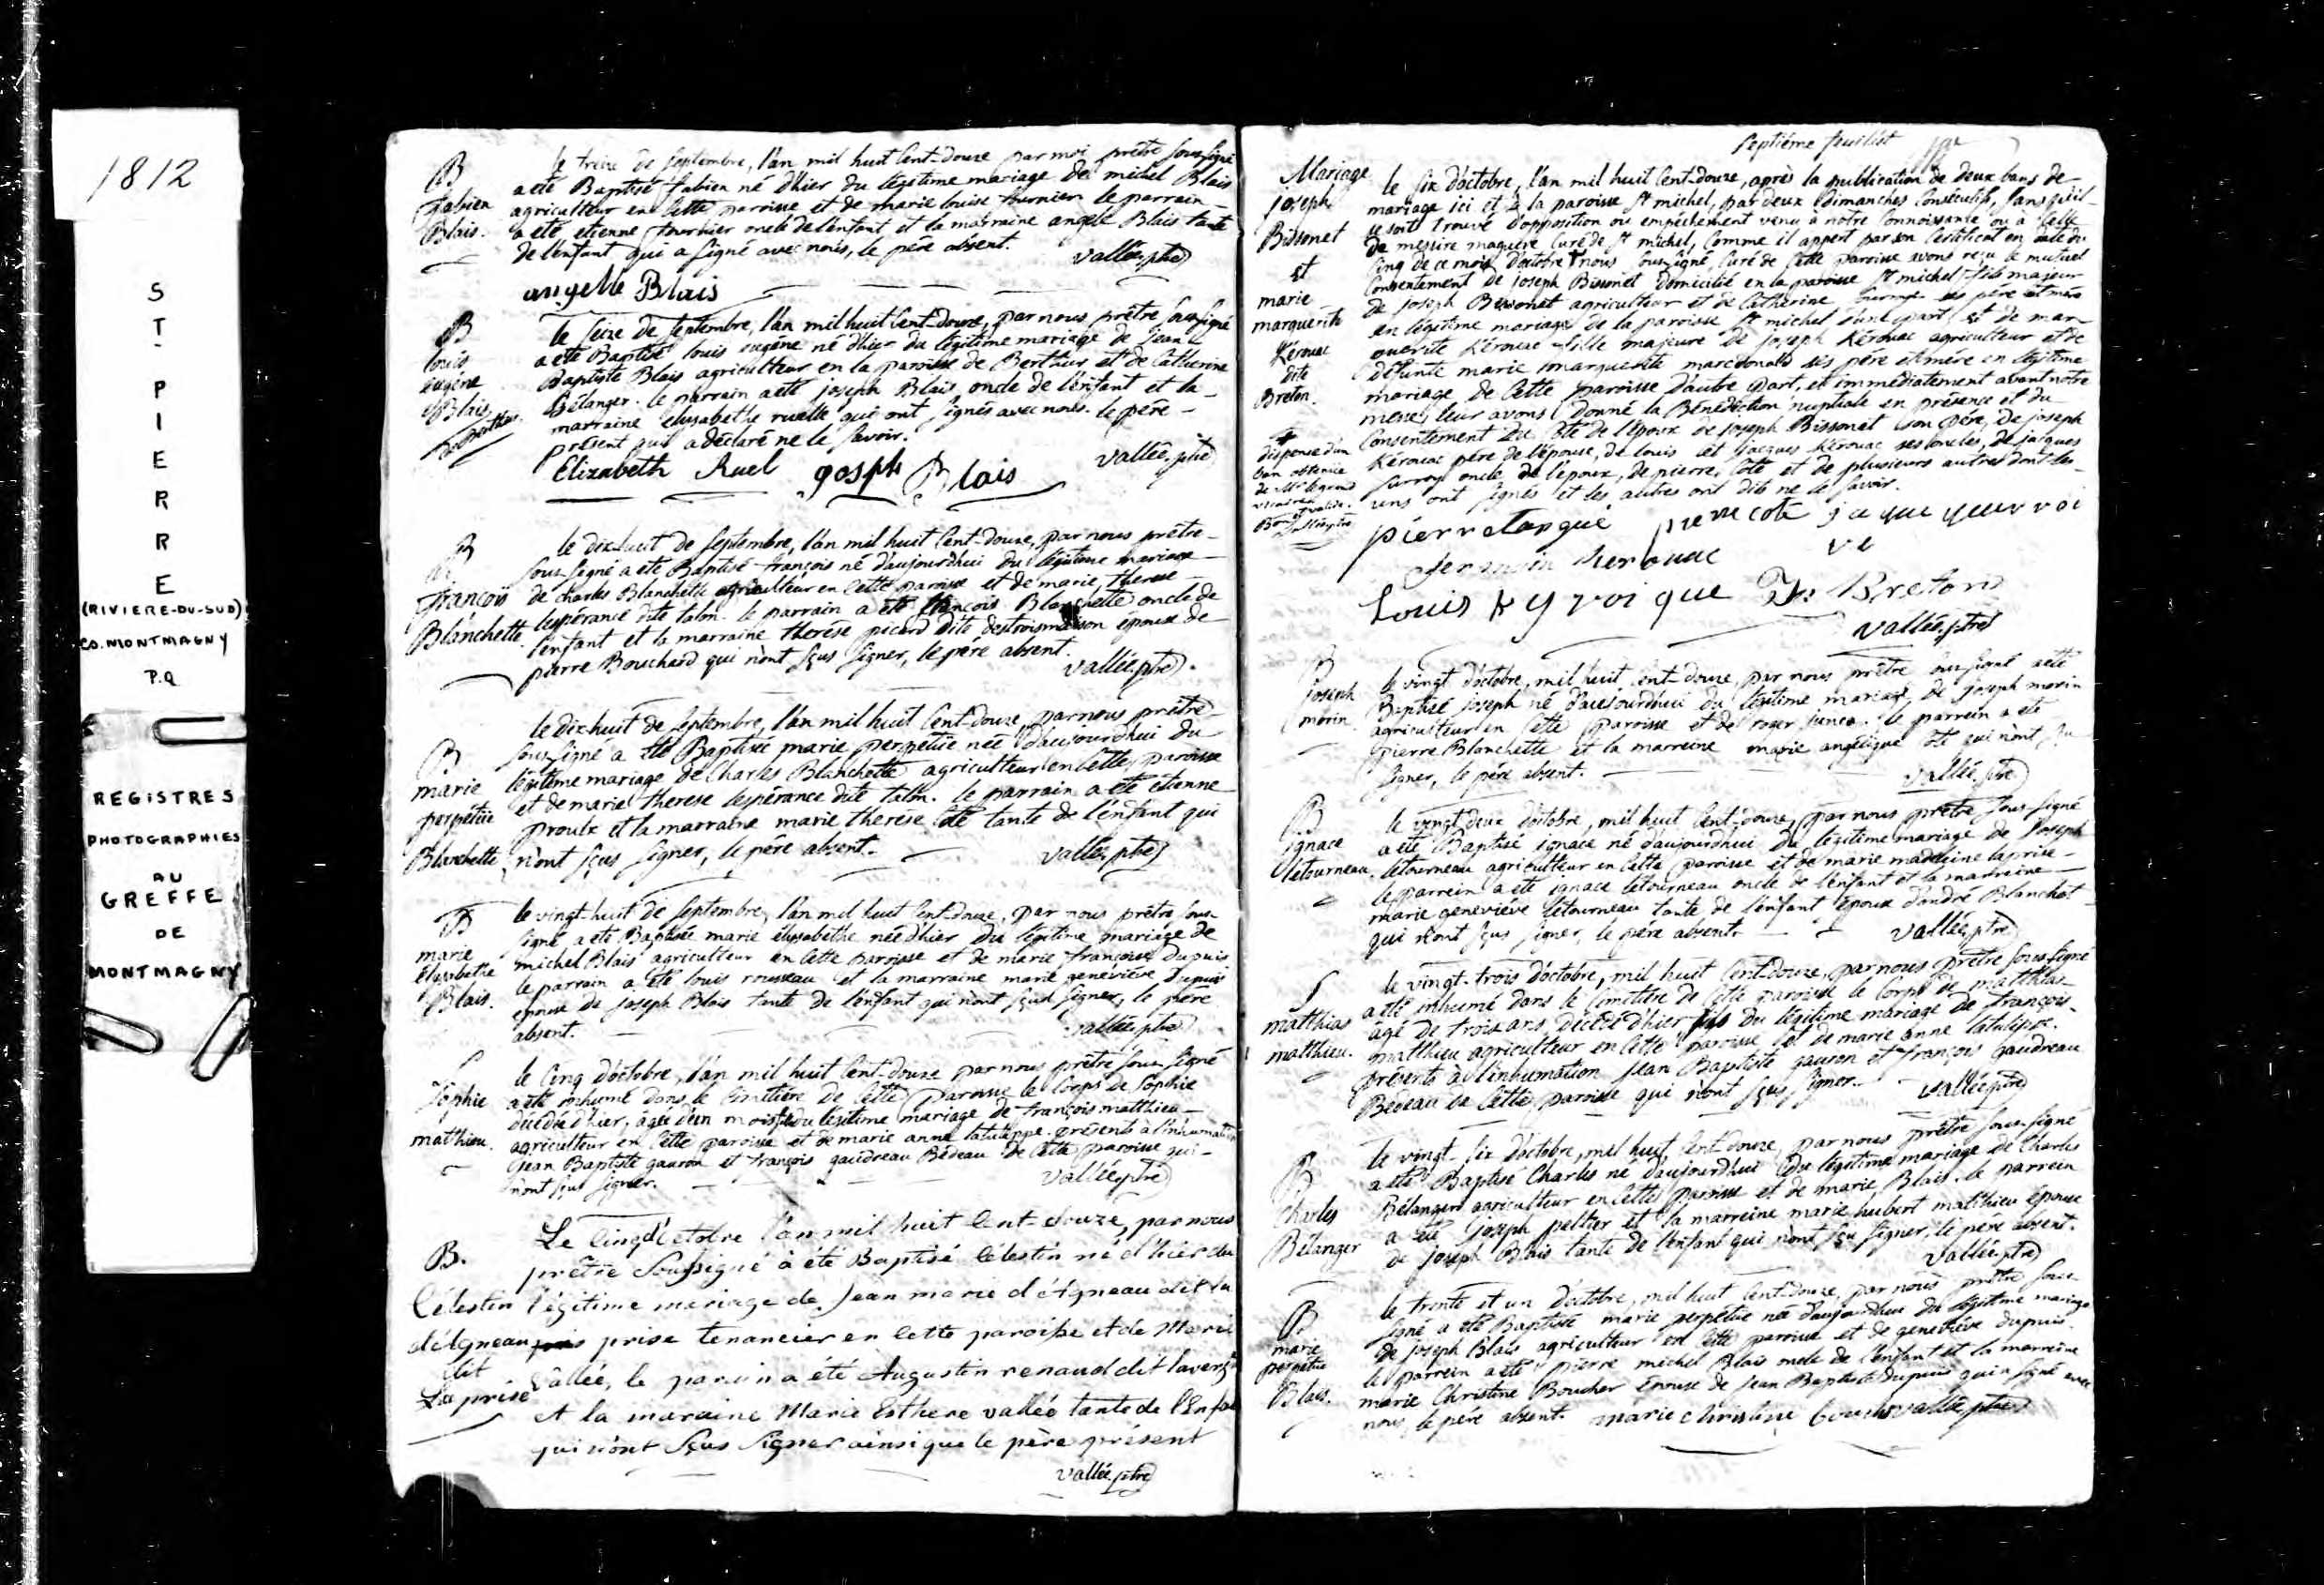 1812
ST
PIERRE
(RIVIERE-DU-SUD)
CO. MONTMAGNY
P.Q
REGISTRES
PHOTOGRAPHIES
AU
GREFFE
DE
MONTMAGNY
B
fabien
Blais.
le treize de Septembre, l'an mil huit Cent-douze par moi prêtre Soussigné
a été Baptisé fabien né d'hier du légitime mariage de michel Blais
agriculteur en Cette paroisse et de marie louise fournier le parrain
a été etienne fournier oncle de l'enfant et la marraine angele Blais tante
de l'enfant qui a Signé avec nous, le père absent.
vallée ptre
angelle Blais
B
louis
eugéne
Blais
de Berthier
le Seize de Septembre, l'an mil huit Cent-douze, par nous prêtre Soussigné
a été Baptisé louis eugéne né d'hier du légitime mariage de jean
Baptiste Blais agriculteur en la paroisse de Berthier et de Catherine
Bélanger. le parrain a été joseph Blais oncle de l'enfant et la
marraine elisabethe ruelle qui ont Signés avec nous. le père
présent qui a déclaré ne le Savoir.
vallée ptre
Elizabeth Ruel gosph Blais
B
françois
Blanchette.
le dix-huit de Septembre, l'an mil huit Cent-douze, par nous prêtre
Sous-Signé a été Baptisé françois né d'aujourdhui du légitime mariage
de charles Blanchette agriculteur en Cette paroisse et de marie therese
lespérance dite talon. le parrain a été françois Blanchette oncle de
l'enfant et la marraine therese picard dite destroismaison epouse de
pierre Bouchard qui n'ont sçus Signer, le père absent.
vallée ptre.
B
marie
perpétue
Blanchette
le dix-huit de Septembre, l'an mil huit Cent-douze, par nous prêtre
Sous-Signé a été Baptisée marie perpétue née d'aujourdhui du
légitime mariage de Charles Blanchette agriculteur en Cette paroisse
et de marie therese lespérance dite talon. le parrain a été etienne
proulx et la marraine marie therese Coté tante de l'enfant qui
n'ont sçus Signer, le père absent.
vallée ptre
B
marie
elisabethe
Blais.
le vingt-huit de Septembre, l'an mil huit Cent-douze, par nous prêtre Sous-
Signé a été Baptisée marie elisabethe née d'hier du légitime mariage de
michel Blais agriculteur en Cette paroisse et de marie françoise Dupuis
le parrain a été louis rousseau et la marraine marie geneviève Dupuis
epouse de joseph Blais tante de l'enfant qui n'ont sçus Signer, le père
absent.
vallée ptre
S
Sophie
mathieu.
le Cinq d'octobre, l'an mil huit Cent-douze par nous prêtre Sous-Signé
a été inhumé dans le Cimetière de Cette paroisse le Corps de Sophie
décédée d'hier, agée d'un mois du légitime mariage de françois matthieu
agriculteur en Cette paroisse et de marie anne latulippe. présents à l'inhumation
jean Baptiste gauron et françois gaudreau Bédeau de Cette paroisse qui
n'ont sçus Signer.
vallée ptre
B.
Célestin
d'Agneau
dit
La prise
Le Cinq d'Octobre l'an mil huit Cent-douze, par nous
prêtre Soussigné à été Baptisé Célestin né d'hier du
légitime mariage de Jean marie d'Agneau dit la
prise tenancier en Cette paroisse et de Marie
Vallée, le parain a été Augustin renaud dit laverg
et la maraine Marie Esthere vallée tante de l'Enfant
qui n'ont Sçus Signer ainsi que le père présent
vallée ptre
Septième feuillet
Mariage
joseph
Bissonet
et
marie
marguerite
Kérouac
dite
Breton.
dispense d'un
ban obtenue
le six d'octobre, l'an mil huit Cent-douze, après la publication de deux bans de
mariage ici et à la paroisse St michel, par deux dimanches Consécutifs, Sans qu'il
se soit trouvé d'opposition ou empêchement venu à notre Connoissance ou à Celle
de messire maguire Curé de St michel, Comme il appert par son Certificat en date du
Cinq de ce mois d'octobre nous Sous-Signé, Curé de Cette paroisse avons reçu le mutuel
Consentement de joseph Bissonet domicilié en la paroisse St michel fils majeur
de joseph Bissonet agriculteur et de Catherine ses père et mère
en légitime mariage de la paroisse St michel d'une part; et de mar-
guerite Kérouac fille majeure de joseph Kérouac agriculteur et de
défunte marie marguerite macdonald ses père et mère en légitime
mariage de Cette paroisse d'autre part, et immédiatement avant notre
messe, leur avons donné la Bénédiction nuptiale en présence et du
Consentement du Coté de l'époux de joseph Bissonet son père, de joseph
Kérouac père de l'épouse, de louis et jacques Kérouac ses oncles, de jacques
oncle de l'époux, de pierre Coté et de plusieurs autres dont les
uns ont Signés et les autres ont dits ne le Savoir.
pierre cote
Kerouac
Louis
Breton
vallée ptre
B
joseph
morin
le vingt d'octobre, mil huit Cent-douze, par nous prêtre Sous-Signé a été
Baptisé joseph né d'aujourdhui du légitime mariage de joseph morin
agriculteur en Cette paroisse et de le parrein a été
pierre Blanchette et la marreine marie angélique Coté qui n'ont sçu
Signer, le père absent.
vallée ptre
B
ignace
létourneau.
le vingt deux d'octobre, mil huit Cent-douze, par nous prêtre Sous-Signé
a été Baptisé ignace né d'aujourdhui du légitime mariage de joseph
létourneau agriculteur en Cette paroisse et de marie madeleine laprise
le parrein a été ignace létourneau oncle de l'enfant et la marreine
marie geneviéve létourneau tante de l'enfant épouse d'andré Blanchet
qui n'ont sçus Signer, le père absent.
vallée ptre
S
matthias
matthieu.
le vingt-trois d'octobre, mil huit Cent-douze, par nous prêtre Sous-Signé
a été inhumé dans le Cimetière de Cette paroisse le Corps de matthias
agé de trois ans décédé d'hier fils du légitime mariage de françois
matthieu agriculteur en Cette paroisse et de marie anne latulippe.
présents à l'inhumation jean Baptiste gauron et françois gaudreau
Bédeau de Cette paroisse qui n'ont sçus Signer.
vallée ptre
B
Charles
Bélanger
le vingt-Six d'octobre, mil huit Cent-douze, par nous prêtre Sous-Signé
a été Baptisé Charles né d'aujourdhui du légitime mariage de Charles
Bélanger agriculteur en Cette paroisse et de marie Blais. le parrein
a été joseph peltier et la marreine marie hubert matthieu épouse
de joseph Blais tante de l'enfant qui n'ont sçu Signer, le père absent.
vallée ptre
B.
marie
perpétue
Blais.
le trente et un d'octobre, mil huit Cent-douze, par nous prêtre Sous-
Signé a été Baptisée marie perpétue née d'aujourdhui du légitime mariage
de joseph Blais agriculteur en Cette paroisse et de geneviéve dupuis.
le parrein a été pierre michel Blais oncle de l'enfant et la marreine
marie Christine Boucher épouse de jean Baptiste dupuis qui a Signé avec
nous, le père absent. marie christine bouché vallée ptre